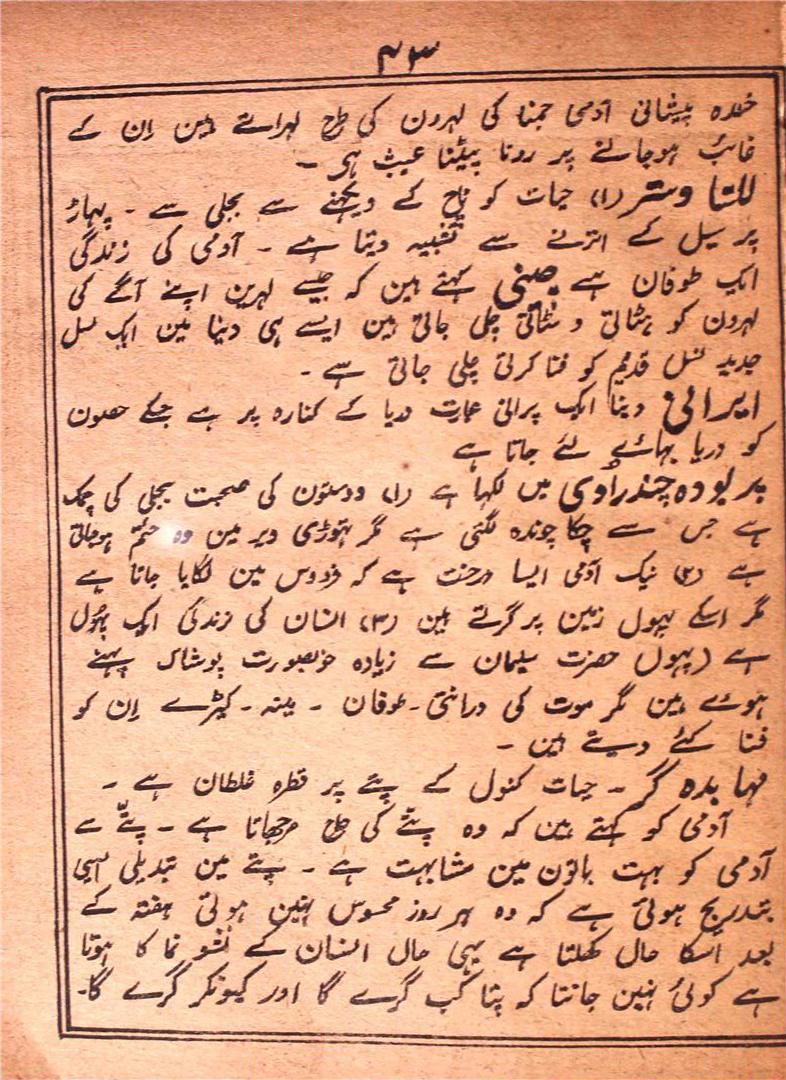 ۴۳
خندہ پیشانی آدمی جمنا کی لہرون کی طرح لہراتے ہین اِن کے
غائب ہوجانے پر رونا پیٹنا عبث ہی ۔
للتا وستر (۱) حیات کو ناچ کے دیکھنے سے بجلی سے ۔ پہاڑ
پر سیل کے اترنے سے تشبیہ دیتا ہے ۔ آدمی کی زندگی
ایک طوفان ہے چینی کہتے ہین کہ جیسے لہرین اپنے آگے کی
لہرون کو ہٹاتی و مٹاتی چلی جاتی ہین ایسے ہی دینا مین ایک نسل
جدید نسل قدیم کو فنا کرتی چلی جاتی ہے ۔
ایرانی دینا ایک پرانی عمارت دریا کے کنارہ پر ہے جسکے حصون
کو دریا بہائے لئے جاتا ہے
پربودہ چندراُوی میں لکہا ہے (۱) دوستون کی صحبت بجلی کی چمک
ہے جس سے چکا چوندہ لگتی ہے مگر تہوڑی دیر مین وہ ختم ہوجاتی
ہے (۲) نیک آدمی ایسا درخت ہے کہ فردوس مین لگایا جاتا ہے
مگر اسکے پہول زمین پر گرتے ہین (۳) انسان کی زندگی ایک پہُول
ہے (پہول حضرت سلیمان سے زیادہ خوبصورت پوشاک پہنے
ہوے ہین مگر موت کی درانتی ۔ طوفان ۔ مینہ ۔ کیڑے اِن کو
فنا کئے دیتے ہین ۔
مہا بدہ گر ۔ حیات کنول کے پتے پر قطرہ غلطان ہے ۔
آدمی کو کہتے ہین کہ وہ پتّے کی طرح مرجھاتا ہے ۔ پتّے سے
آدمی کو بہت باتون مین مشابہت ہے ۔ پتے مین تبدیلی ایسی
بتدریج ہوتی ہے کہ وہ ہر روز محسوس نہین ہوتی ہفتہ کے
بعد اُسکا حال کھلتا ہے یہی حال انسان کے نشو نما کا ہوتا
ہے کوئی نہین جانتا کہ پتا کب گرے گا اور کیونکر گرے گا ۔